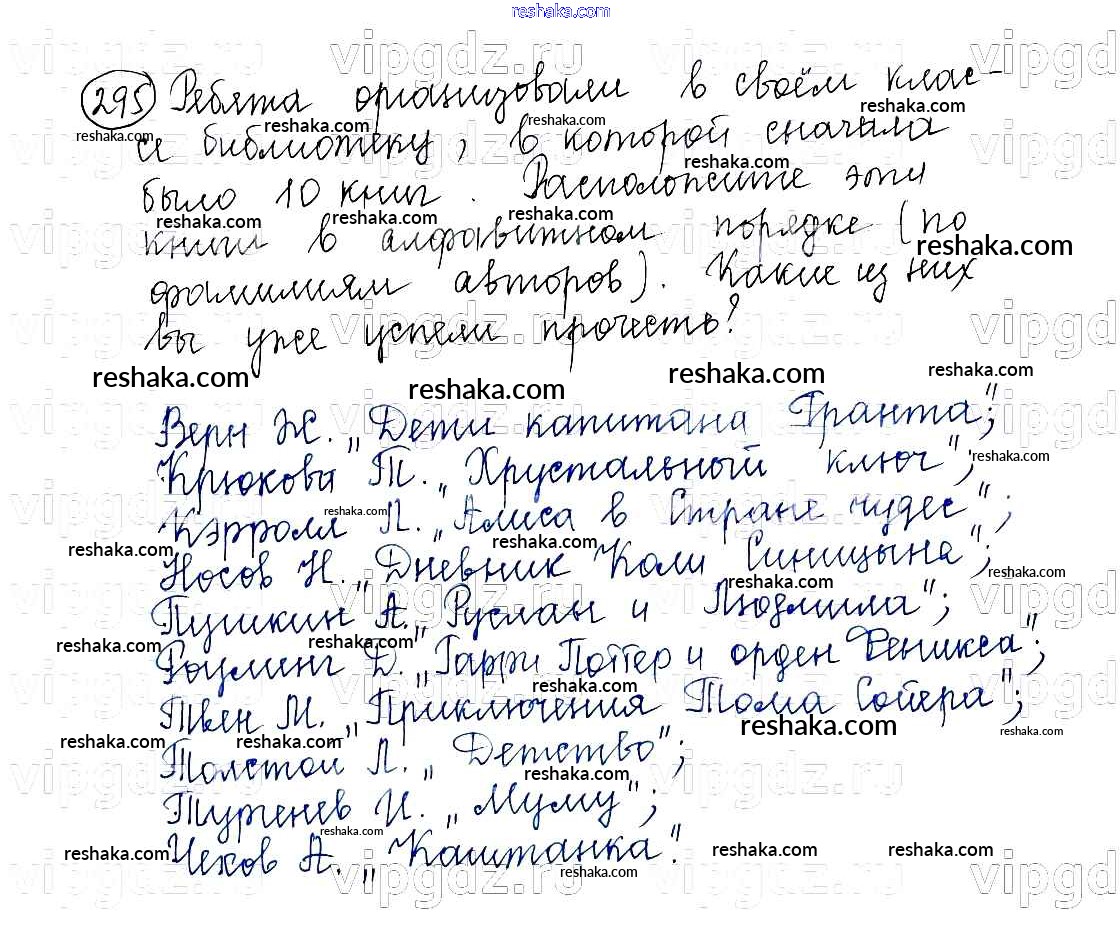 reshaka.com
295 Ребята организовали в своём клас-
се библиотеку, в которой сначала
было 10 книг. Расположите эти
книги в алфавитном порядке (по
фамилиям авторов). Какие из них
вы уже успели прочесть?
Верн Ж. „Дети капитана Гранта";
Крюкова Т. „Хрустальный ключ";
Кэрролл Л. „Алиса в Стране чудес";
Носов Н. „Дневник Коли Синицына";
Пушкин А. „Руслан и Людмила";
Роулинг Д. „Гарри Поттер и орден Феникса";
Твен М. „Приключения Тома Сойера";
Толстой Л. „Детство";
Тургенев И. „Муму";
Чехов А. „Каштанка".